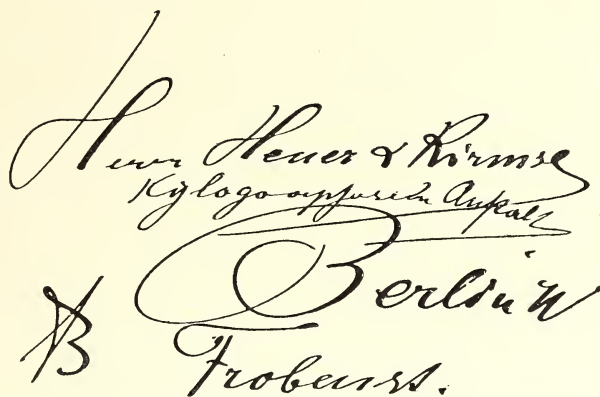 Herrn Heuer & Kirmse
Xylographische Anstalt
Berlin W
B
Frobenst.